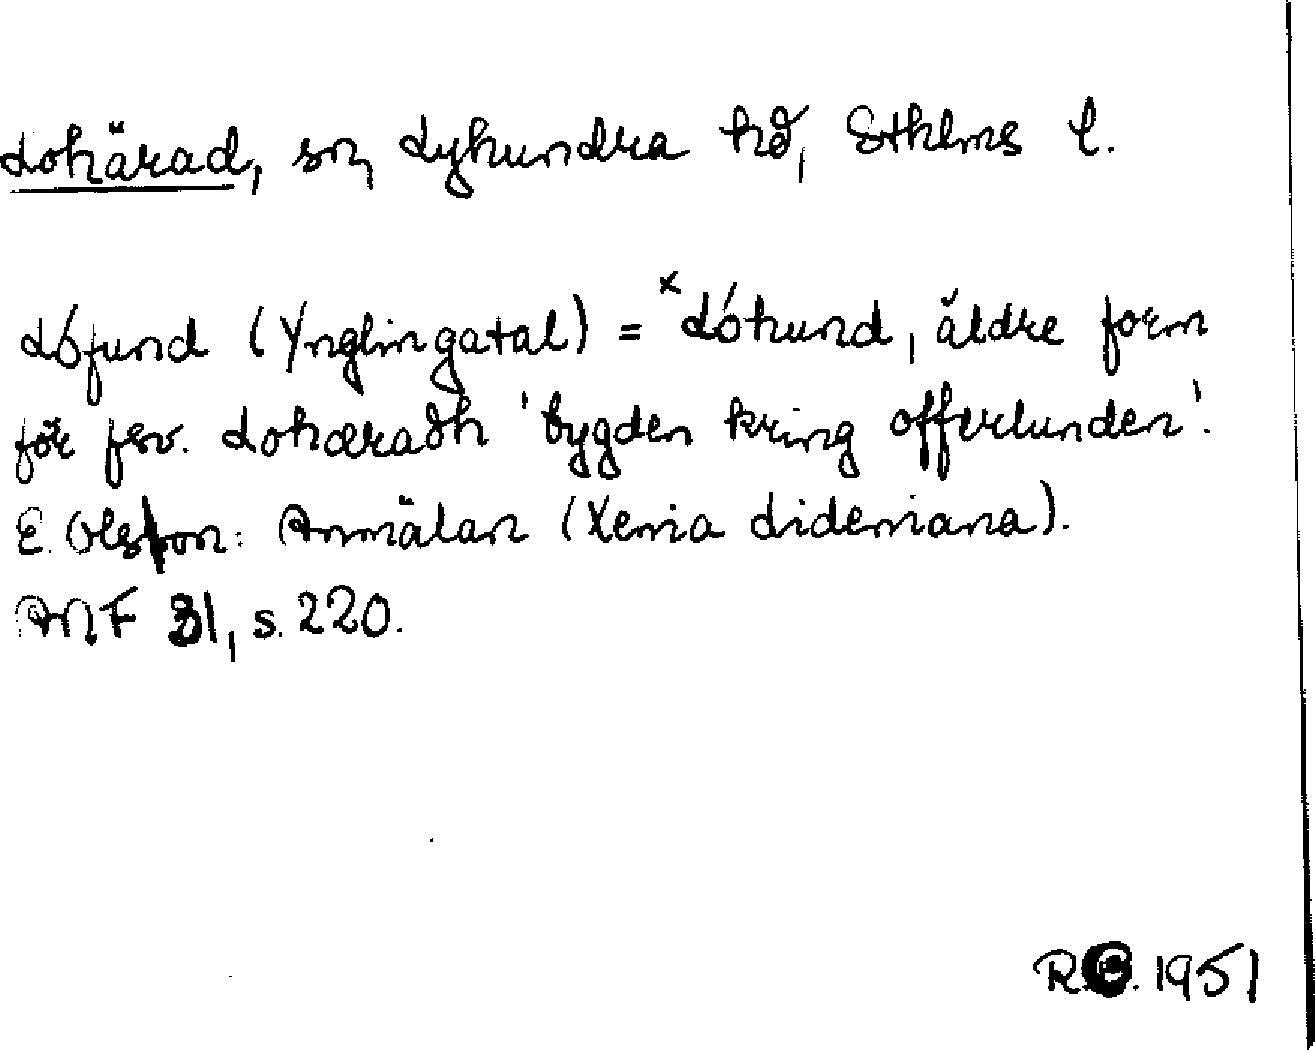 Lohärad, sn, Lyhundra hd, Sthlms l.
Lófund (Ynglingatal) = ×Lóhund, äldre form
för fsv. Lohæradh 'bygden kring offerlunden'.
E. Olson: Anmälan (Xenia Lideniana).
ANF 31, s. 220.
1951